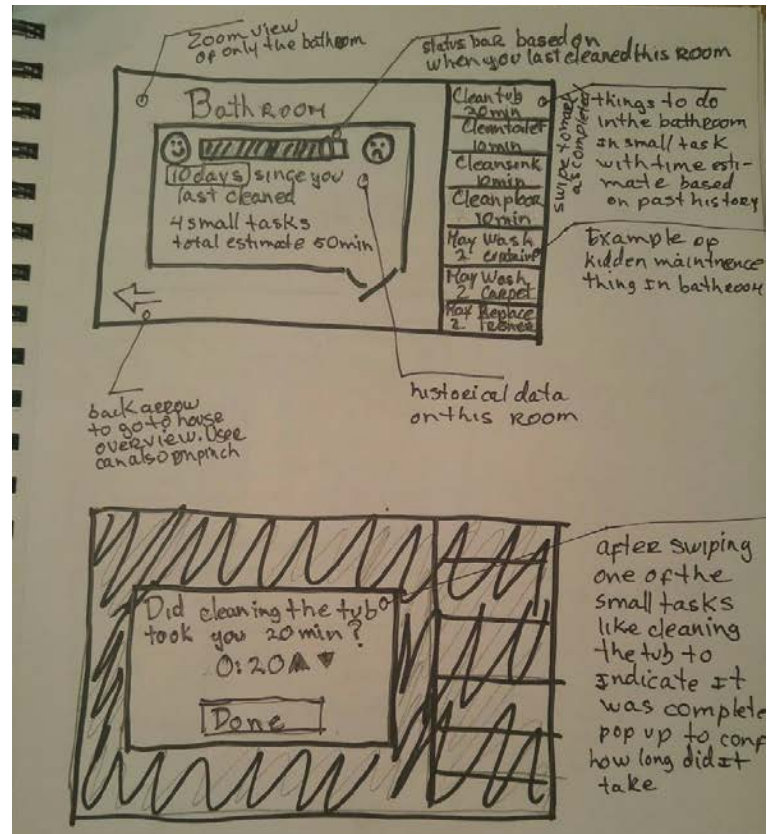 Zoom view
of only the bathroom
status bar based on
when you last cleaned this room
Bathroom
10 days since you
last cleaned
4 small tasks
total estimate 50min
Clean tub
20min
Clean toilet
10min
Clean sink
10min
Clean floor
10min
May Wash
2
May Wash
2 Carpet
May Replace
2
swipe to mark
as completed
things to do
in the bathroom
In small task
with time esti-
mate based
on past history
Example of
hidden maintnence
thing In bathroom
back arrow
to go to house
overview. User
can also
historical data
on this room
Did cleaning the tub
took you 20 min?
0:20
Done
after swiping
one of the
small tasks
like cleaning
the tub to
Indicate It
was complete
pop up to conf
how long did It
take